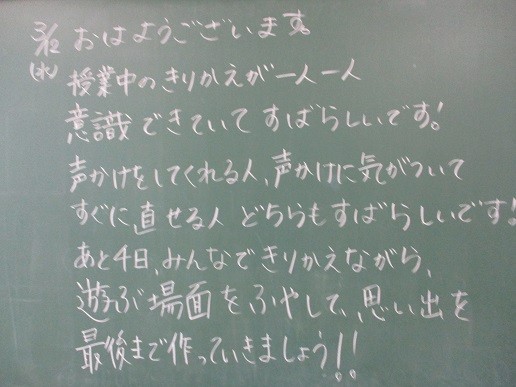 3/12 おはようございます。
(水) 授業中のきりかえが一人一人
意識できていてすばらしいです!
声かけをしてくれる人、声かけに気がついて
すぐに直せる人 どちらもすばらしいです!
あと4日、みんなできりかえながら、
遊ぶ場面をふやして、思い出を
最後まで作っていきましょう!!